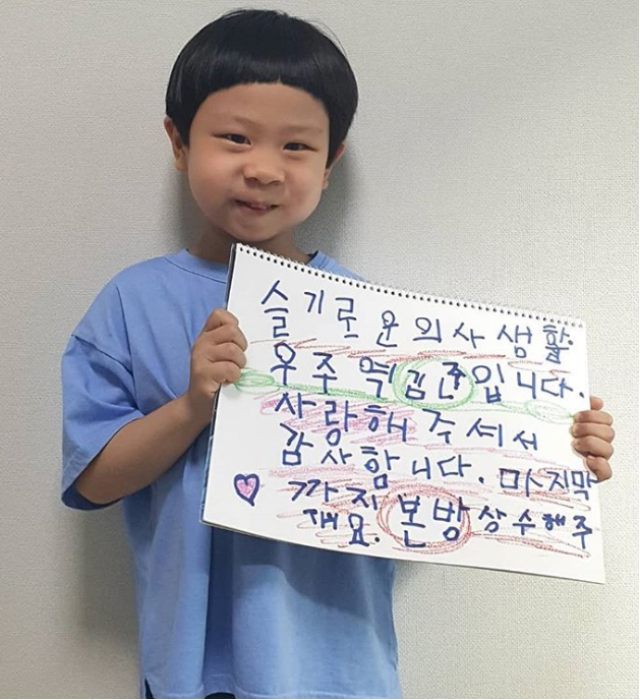 슬기로운의사생활
우주역김준입니다.
사랑해주셔서
감사합니다. 마지막
까지 본방상수해주
새요.